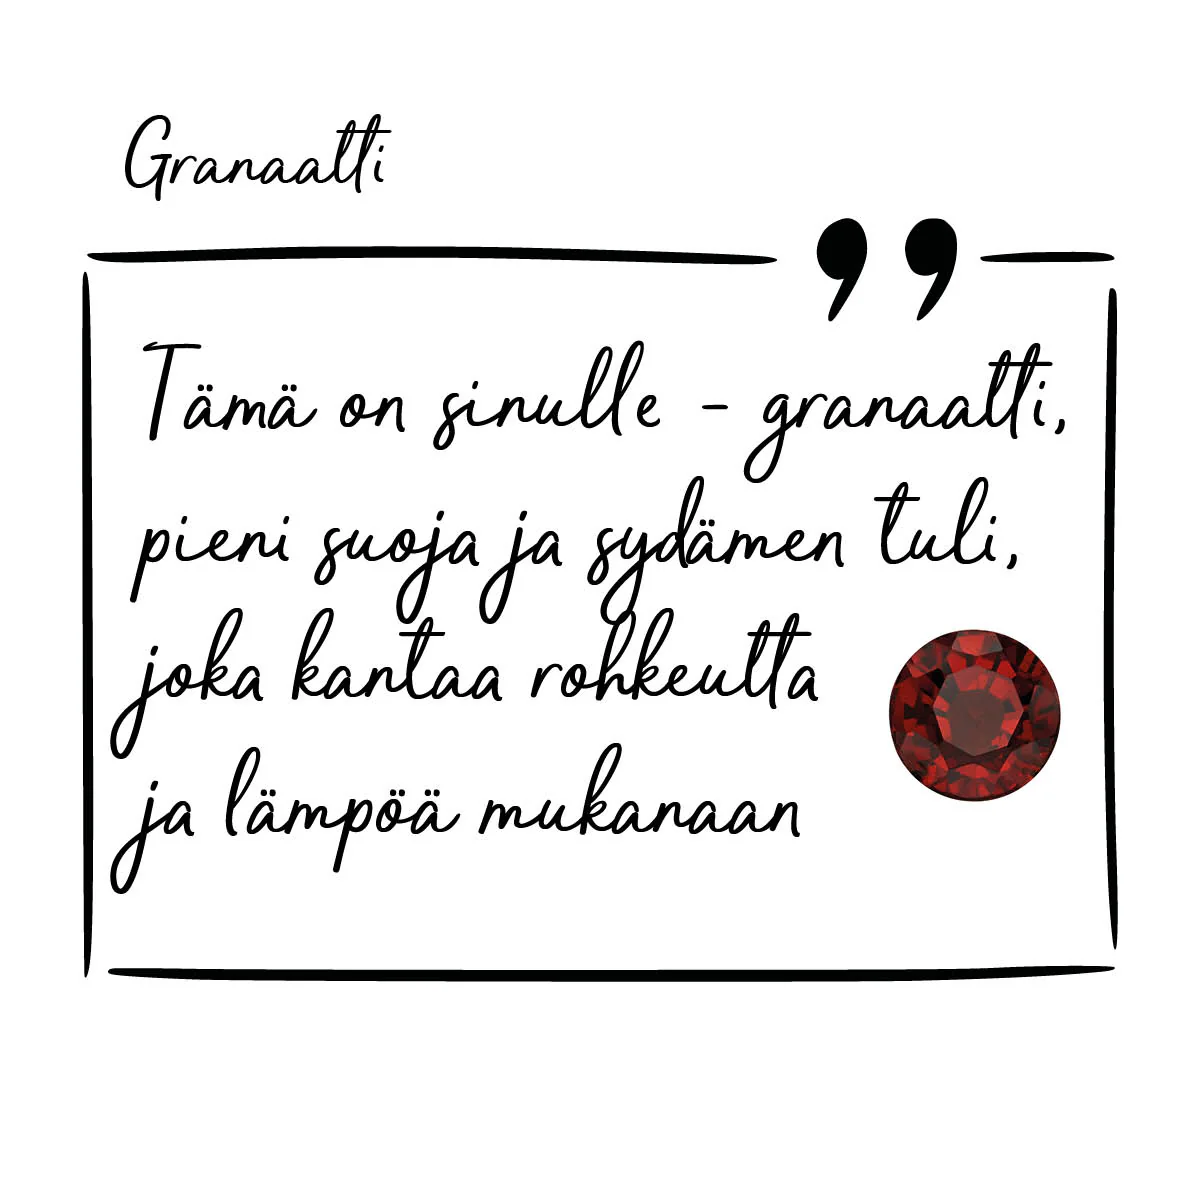 Granaatti
”
Tämä on sinulle - granaatti,
pieni suoja ja sydämen tuli,
joka kantaa rohkeutta
ja lämpöä mukanaan